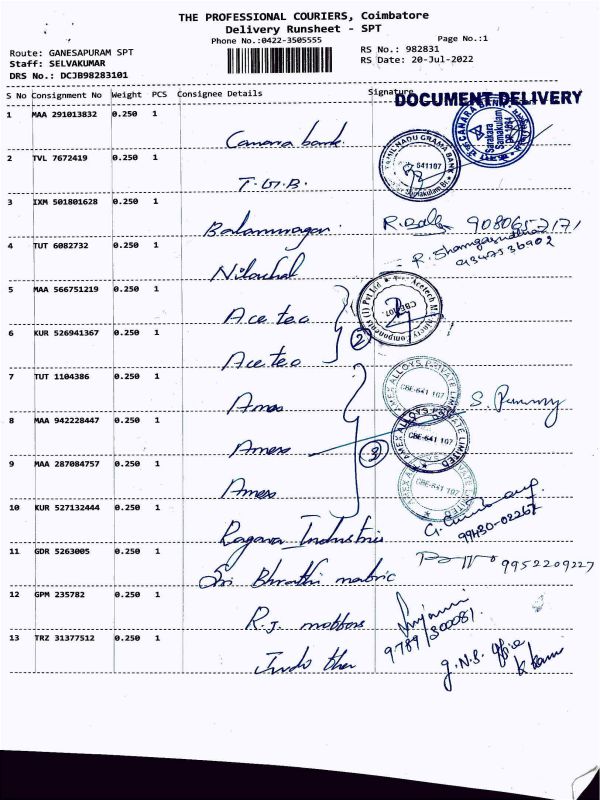 THE PROFESSIONAL COURIERS, Coimbatore
Delivery Runsheet - SPT
Phone No.:0422-3505555
Page No.:1
Route: GANESAPURAM SPT
RS No.: 982831
Staff: SELVAKUMAR
RS Date: 20-Jul-2022
DRS No.: DCJB98283101
S No Consignment No Weight PCS Consignee Details Signature
DOCUMENT DELIVERY
1 MAA 291013832 0.250 1 Canara bank
CANARA BANK
2 TVL 7672419 0.250 1 T.G.B.
TAMIL NADU GRAMA BANK
641107
3 IXM 501801628 0.250 1 9080657171
4 TUT 6082732 0.250 1
9347536902
5 MAA 566751219 0.250 1 Ace tec
Components (I) Pvt Ltd
2
6 KUR 526941367 0.250 1 Ace tec
7 TUT 1104386 0.250 1 Amex
AMEX ALLOYS PRIVATE LIMITED
CBE-641 107
8 MAA 942228447 0.250 1 Amex
AMEX ALLOYS PRIVATE LIMITED
CBE-641 107
3
9 MAA 287084757 0.250 1 Amex
CBE-641 107
10 KUR 527132444 0.250 1 Ragava Industries
99430-02267
11 GDR 5263005 0.250 1 Sri Bharathi matric
9952209227
12 GPM 235782 0.250 1 R.J.
9789300081
13 TRZ 31377512 0.250 1 Indo
G.N.S. office